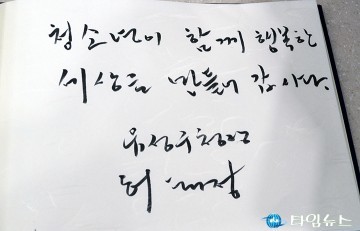 청소년이 함께 행복한
세상을 만들어 갑시다.
유성구청장
허 태정
타임뉴스